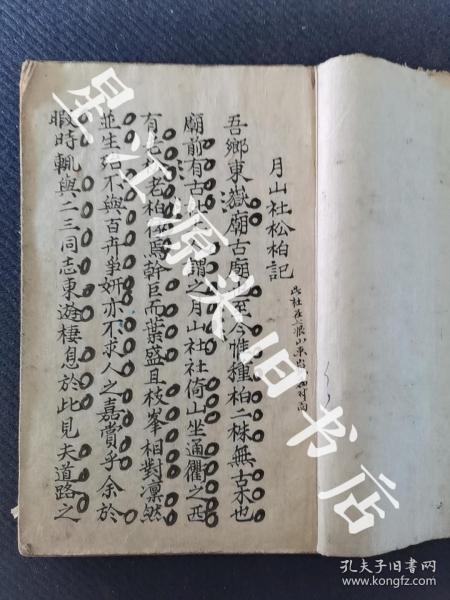 月山社松柏記
吾鄉東嶽廟古廟也至今惟種柏二株無古木也
廟前有古社謂之月山社社倚山坐通衢之西
有老松老柏焉幹巨而葉盛且枝峯相對凜然
並生殆不與百卉爭妍亦不求人之嘉賞乎余於
暇時輒與二三同志東遊棲息於此見夫道路之
星江源头旧书店
孔夫子旧书网
www.kongfz.com